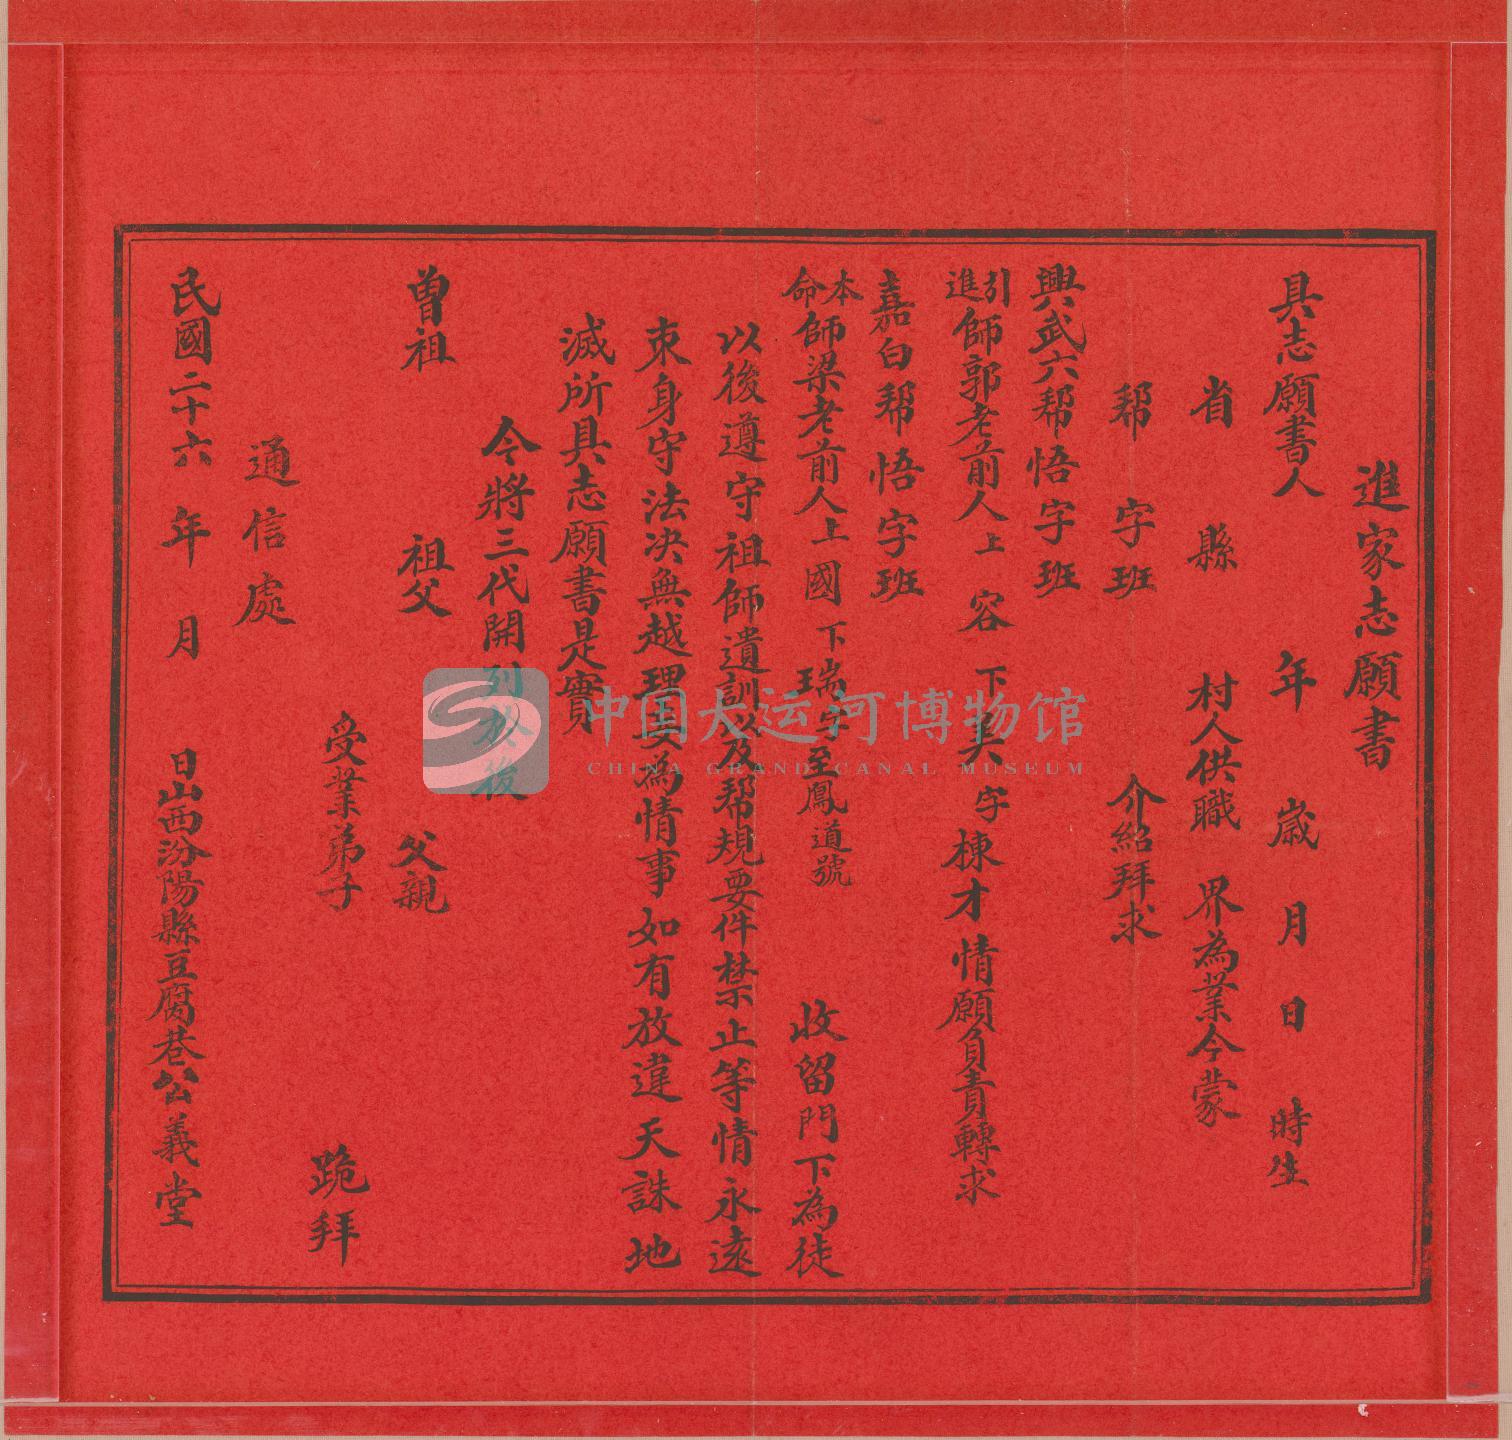 進家志願書
具志願書人 年 歲 月 日 時生
省 縣 村人供職 界為業今蒙
帮 字班 介紹拜求
興武六帮悟字班
引進師郭老前人上容下 字棟才情願負責轉求
嘉白帮悟字班
本命師梁老前人上國下瑞字至鳳道號 收留門下為徒
以後遵守祖師遺訓以及帮規要件禁止等情永遠
束身守法决無越理妄為情事如有放違天誅地
滅所具志願書是實
今將三代開列於後
曾祖 祖父 父親
受業弟子 跪拜
通信處
民國二十六年 月 日山西汾陽縣豆腐巷公義堂
中国大运河博物馆
CHINA GRAND CANAL MUSEUM